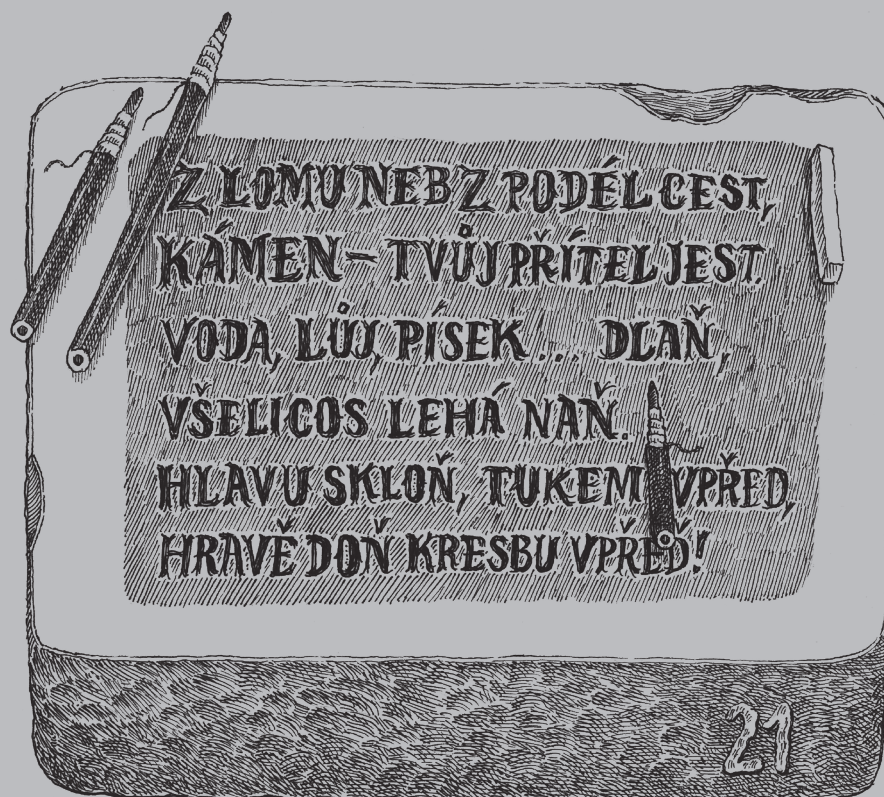 Z LOMU NEB Z PODÉL CEST,
KÁMEN – TVŮJ PŘÍTEL JEST
VODA, LŮJ, PÍSEK ... DLAŇ,
VŠELICOS LEHÁ NAŇ.
HLAVU SKLOŇ, TUKEM VPŘED,
HRAVĚ DOŇ KRESBU VPŘEĎ!
21